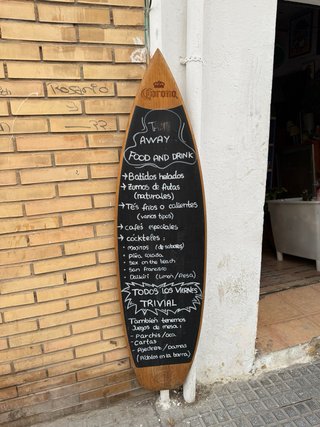 Corona
AWAY
FOOD AND DRINK
→ Batidos helados
→ Zumos de frutas
(naturales)
→ Tés fríos o calientes
(varios tipos)
→ cafés especiales
→ cócteles:
• mojitos (de sabores)
• piña colada
• sex on the beach
• san francisco
• Daikiri (Limón/fresa)
TODOS LOS VIERNES
TRIVIAL
También tenemos
Juegos de mesa:
- Parchís/oca
- Cartas
- Ajedrez/Damas
(Pídelos en la barra)